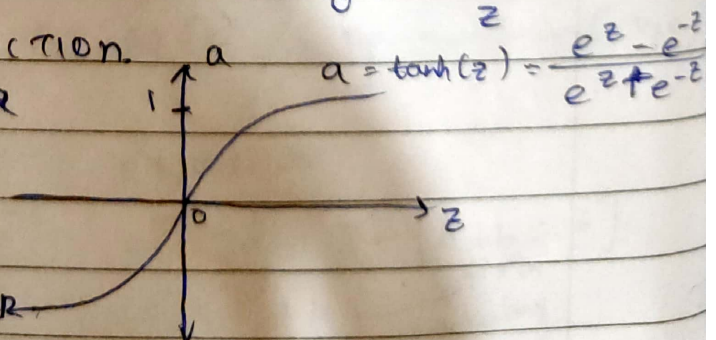 z
CTION.
a
a = tanh(z) = e^z - e^-z / e^z + e^-z
1
0
z